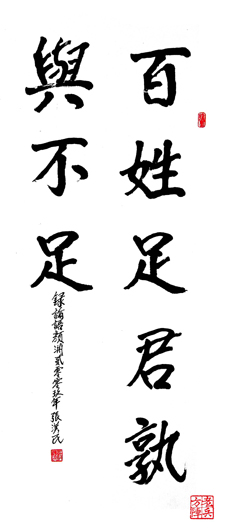 百姓足君孰
與不足
錄論語顏淵貳零零玖年張漢民